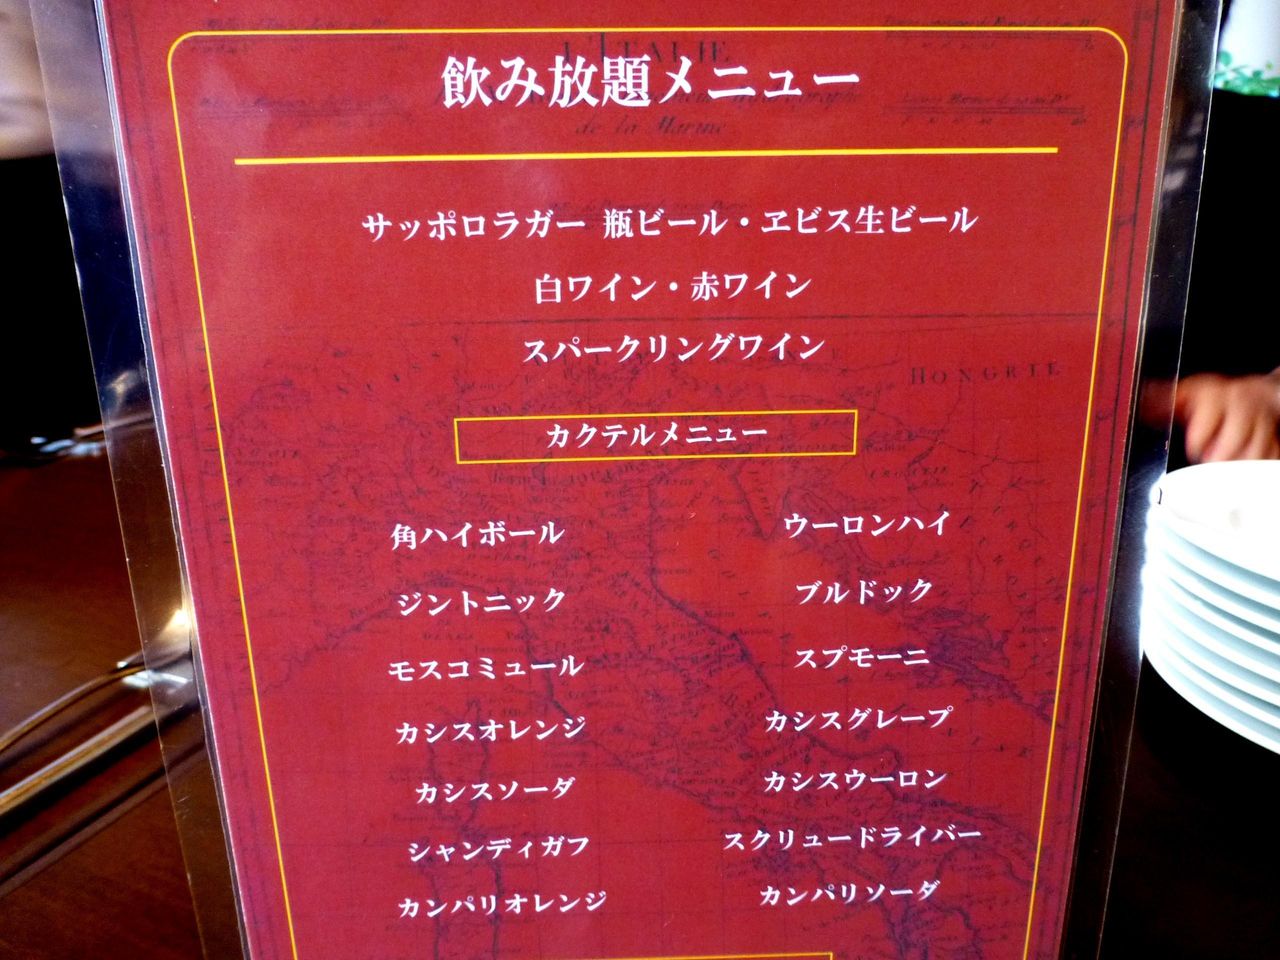 L'ITALIE
飲み放題メニュー
de la Marine
サッポロラガー 瓶ビール・ヱビス生ビール
白ワイン・赤ワイン
スパークリングワイン
HONGRIE
カクテルメニュー
角ハイボール ウーロンハイ
ジントニック ブルドック
モスコミュール スプモーニ
カシスオレンジ カシスグレープ
カシスソーダ カシスウーロン
シャンディガフ スクリュードライバー
カンパリオレンジ カンパリソーダ